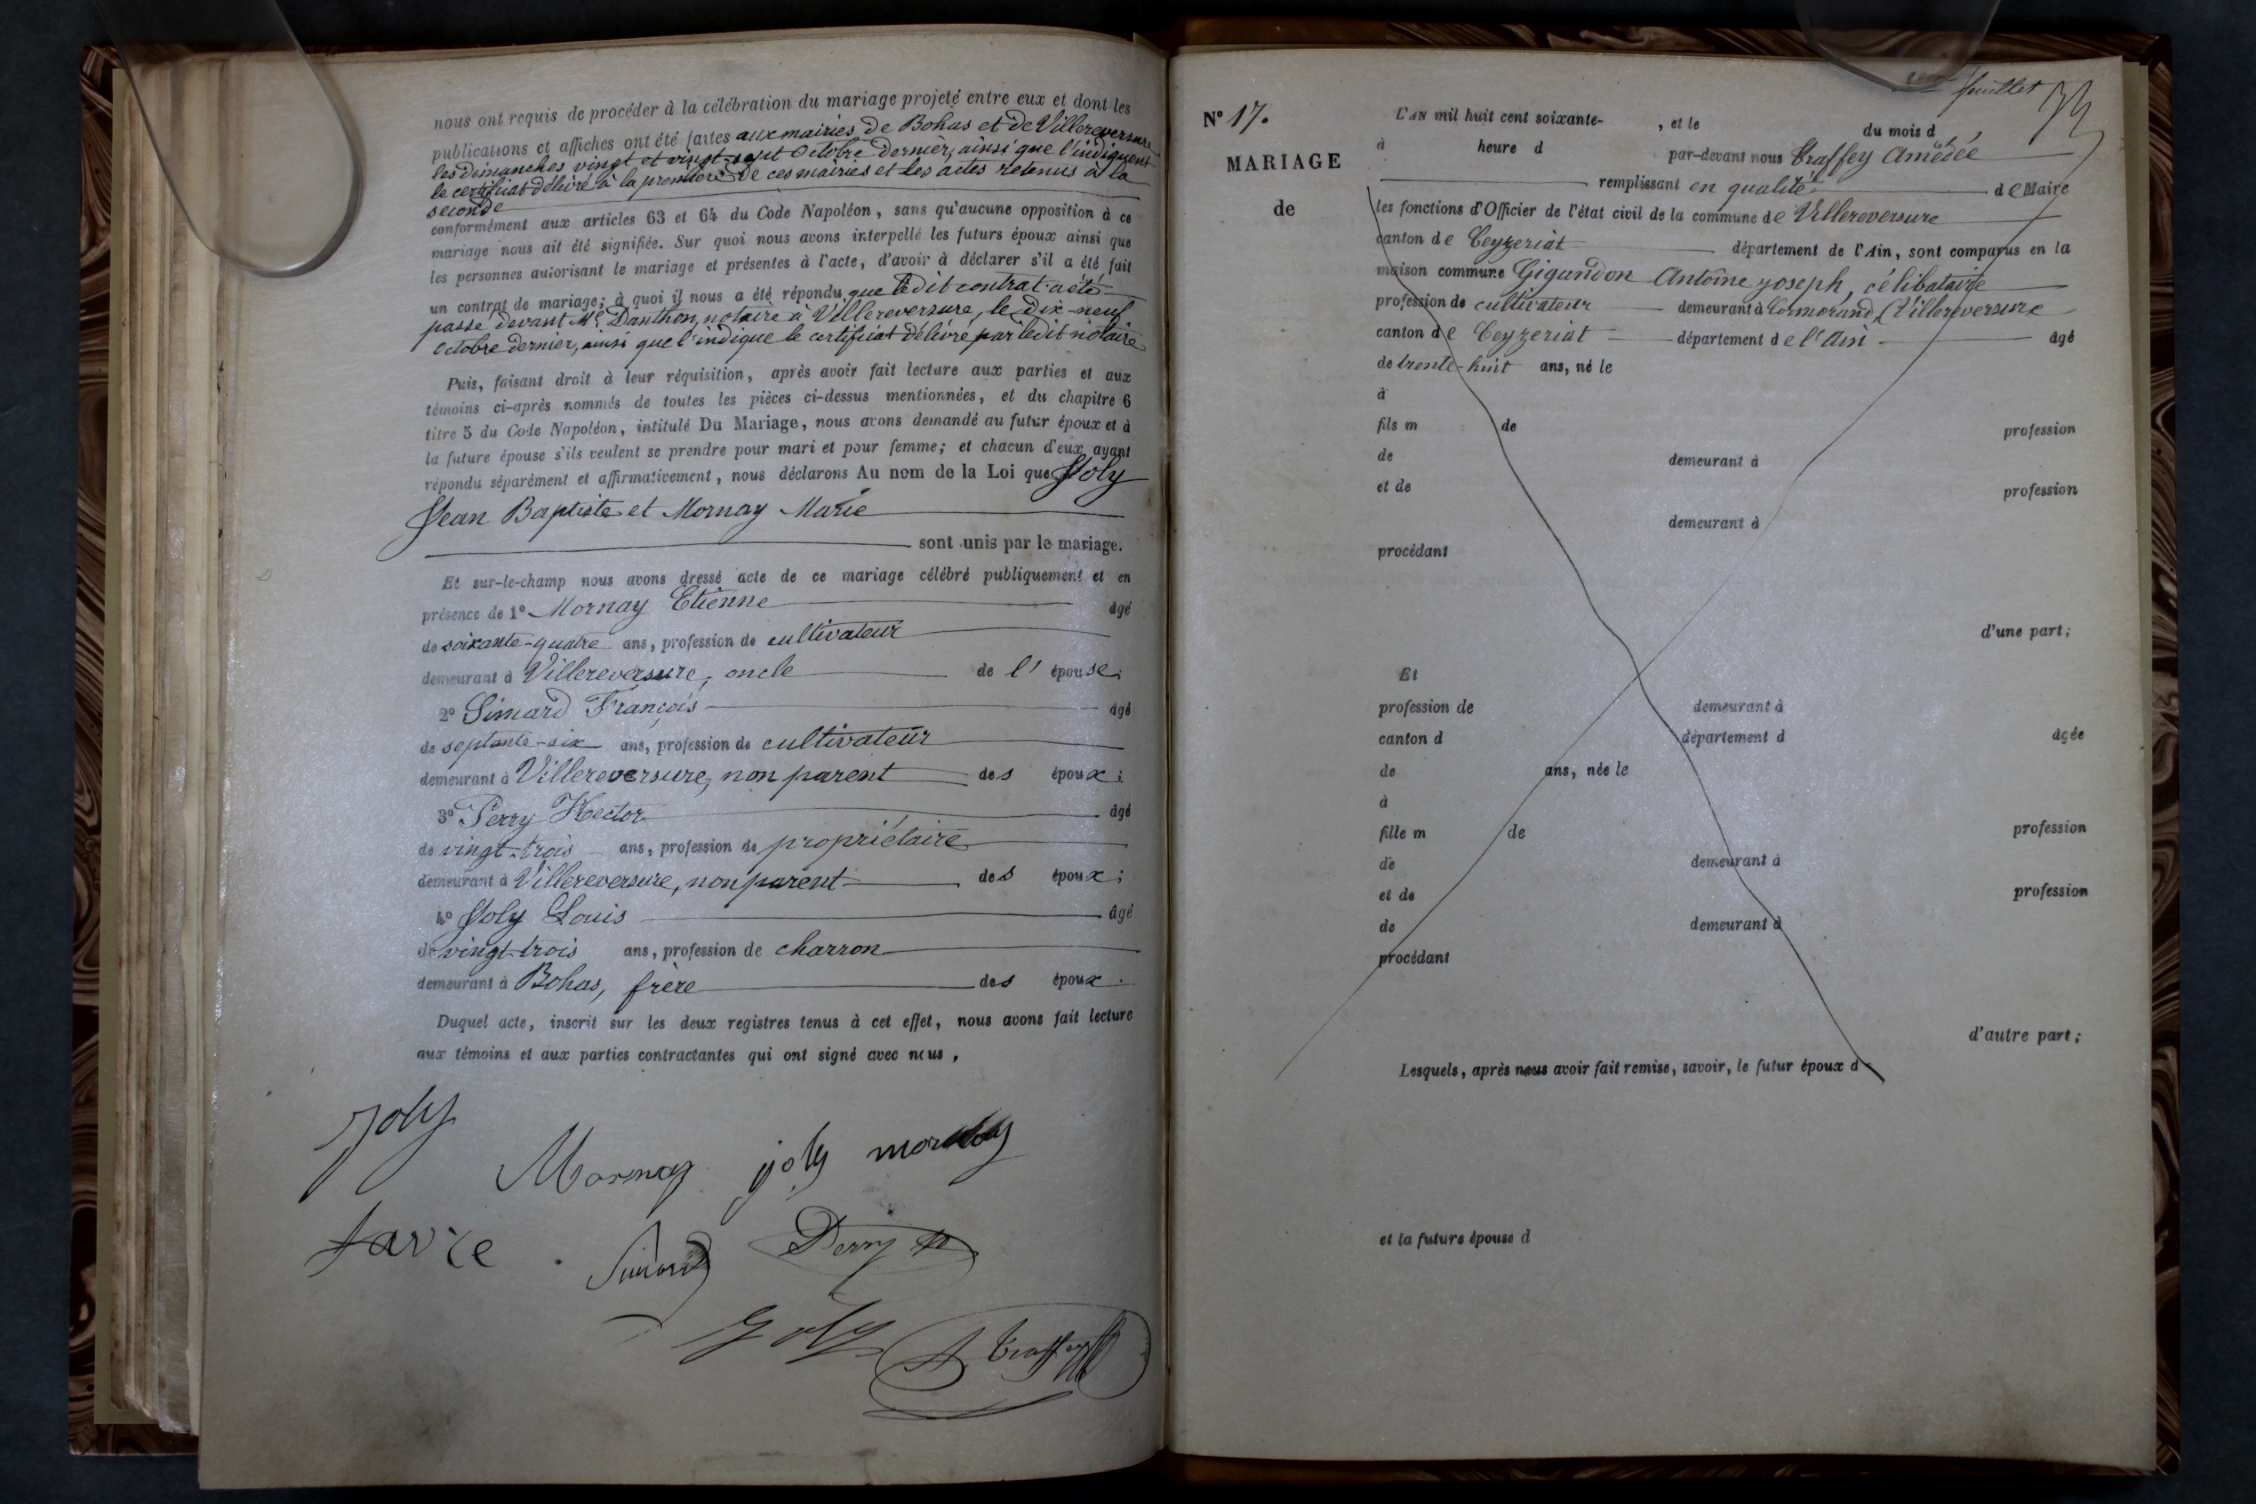 nous ont requis de procéder à la célébration du mariage projeté entre eux et dont les
publications et affiches ont été faites aux mairies de Bohas et de Villereversure
les dimanches vingt et vingt-sept Octobre dernier, ainsi que l'indiquent
le certificat délivré à la première de ces mairies et les actes retenus à la
seconde
conformément aux articles 63 et 64 du Code Napoléon, sans qu'aucune opposition à ce
mariage nous ait été signifiée. Sur quoi nous avons interpellé les futurs époux ainsi que
les personnes autorisant le mariage et présentes à l'acte, d'avoir à déclarer s'il a été fait
un contrat de mariage; à quoi il nous a été répondu que ledit contrat a été
passé devant Me Danthon, notaire à Villereversure, le dix-neuf
Octobre dernier, ainsi que l'indique le certificat délivré par ledit notaire
Puis, faisant droit à leur réquisition, après avoir fait lecture aux parties et aux
témoins ci-après nommés de toutes les pièces ci-dessus mentionnées, et du chapitre 6
titre 5 du Code Napoléon, intitulé Du Mariage, nous avons demandé au futur époux et à
la future épouse s'ils veulent se prendre pour mari et pour femme; et chacun d'eux ayant
répondu séparément et affirmativement, nous déclarons Au nom de la Loi que Joly
Jean Baptiste et Mornay Marie
sont unis par le mariage.
Et sur-le-champ nous avons dressé acte de ce mariage célébré publiquement et en
présence de 1° Mornay Etienne âgé
de soixante-quatre ans, profession de cultivateur
demeurant à Villereversure, oncle de l' épouse;
2° Simard François âgé
de septante-six ans, profession de cultivateur
demeurant à Villereversure, non parent des époux;
3° Perry Hector âgé
de vingt-trois ans, profession de propriétaire
demeurant à Villereversure, non parent des époux;
4° Joly Louis âgé
de vingt-trois ans, profession de charron
demeurant à Bohas, frère des époux.
Duquel acte, inscrit sur les deux registres tenus à cet effet, nous avons fait lecture
aux témoins et aux parties contractantes qui ont signé avec nous,
Joly
Mornay joly mornay
favre
Simard Perry
Joly A. Traffey
feuillet
N° 17.
MARIAGE
de
L'AN mil huit cent soixante- , et le du mois d
à heure d par-devant nous Traffey Amédée
remplissant en qualité de Maire
les fonctions d'Officier de l'état civil de la commune de Villereversure
canton de Ceyzeriat département de l'Ain, sont comparus en la
maison commune Gigandon Antoine joseph, célibataire
profession de cultivateur demeurant à Cormorand, Villereversure
canton de Ceyzeriat département de l'Ain âgé
de trente-huit ans, né le
à
fils m de profession
de demeurant à
et de profession
demeurant à
procédant
d'une part;
Et
profession de demeurant à
canton d département d âgée
de ans, née le
à
fille m de profession
de demeurant à
et de profession
de demeurant à
procédant
d'autre part;
Lesquels, après nous avoir fait remise, savoir, le futur époux d
et la future épouse d